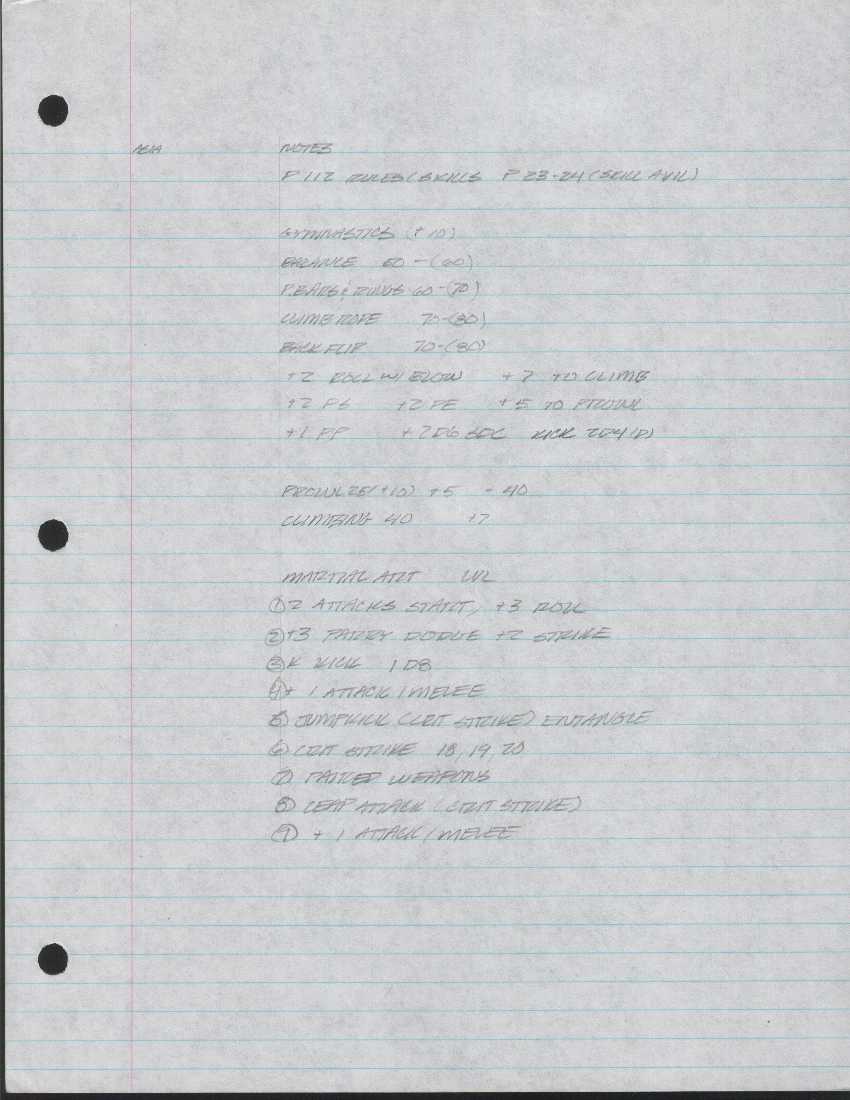 ASIA NOTES
P 112 RULES (SKILLS P 23-24 (SKILL AVIL)
GYMNASTICS (+10)
BALANCE 50-(60)
P.BARS & RINGS 60-(70)
CLIMB ROPE 70-(80)
BACK FLIP 70-(80)
+2 ROLL W/ BLOW +7 TO CLIMB
+2 PS +2 PE +5 TO PROWL
+1 PP +2D6 SDC KICK 2D4 (D)
PROWL 25(+10) +5 - 40
CLIMBING 40 +7
MARTIAL ART LVL
① 2 ATTACKS START, +3 ROLL
② +3 PARRY DODGE +2 STRIKE
③ K KICK 1D8
④ + 1 ATTACK / MELEE
⑤ JUMPKICK (CRIT STRIKE) ENTANGLE
⑥ CRIT STRIKE 18, 19, 20
⑦ PAIRED WEAPONS
⑧ LEAP ATTACK (CRIT STRIKE)
⑨ + 1 ATTACK / MELEE